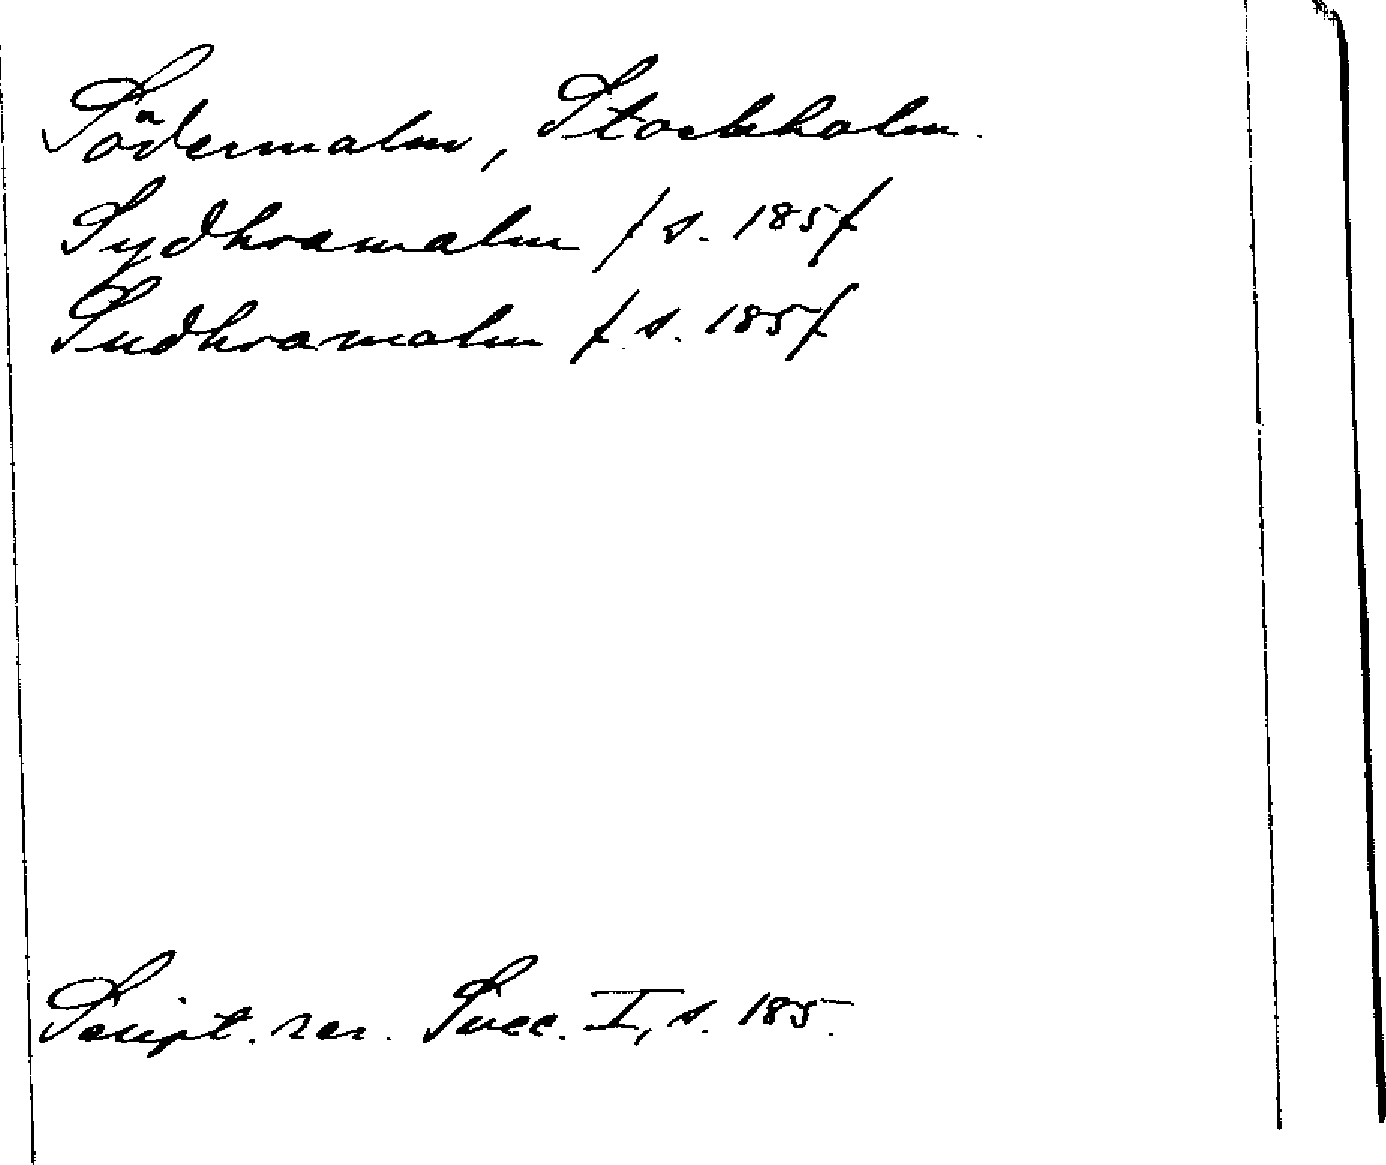 Södermalm, Stockholm.
Sydhramalm /s. 185/
Sudhramalm /s. 185/
Script. rer. Suec. I, s. 185.